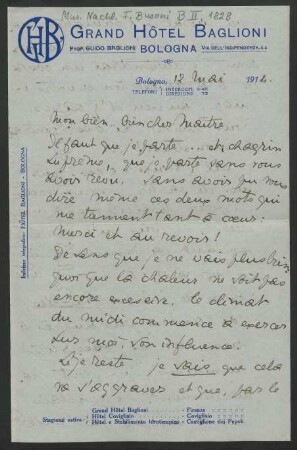 Mus. Nachl. F. Busoni B II, 1828
GHB
GRAND HÔTEL BAGLIONI
PROP. GUIDO BAGLIONI BOLOGNA VIA DELL'INDIPENDENZA,
Bologna, 12 Mai 1912
TELEFONI INTERCOM.
Mon bien, bien cher Maître,
Il faut que je parte... et, chagrin
suprême, que je parte sans vous
avoir revu. sans avoir pu vous
dire même ces deux mots qui
me tiennent tant à cœur:
Merci et au revoir!
Je sens que je ne vais plus bien
quoi que la chaleur ne soit pas
encore excessive. le climat
du midi commence à exercer
sur moi, son influence.
Si je reste, je sais que cela
va s'aggraver et que, par le
Indirizzo telegrafico: HÔTEL BAGLIONI - BOLOGNA
Grand Hôtel Baglioni - Firenze
Stagione estiva: Hôtel Covigliaio - Covigliaio
Hôtel e Stabilimento Idroterapico - Castiglione dei Pepoli